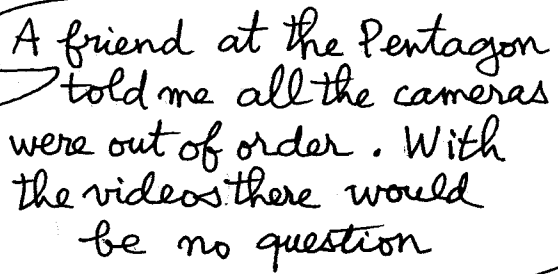 A friend at the Pentagon
told me all the cameras
were out of order. With
the videos there would
be no question